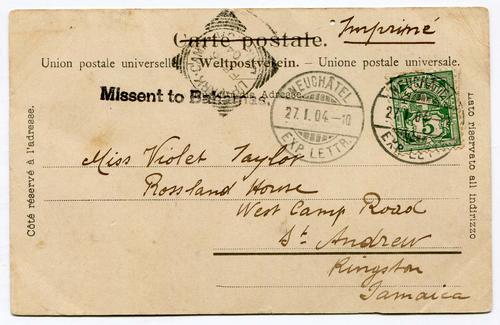 Carte postale.
Imprimé
Union postale universelle. Weltpostverein. Unione postale universale.
Missent to Bahamas.
NEUCHÂTEL
27.I.04.-10
EXP. LETTR.
5
EXP. LETTR.
Miss Violet Taylor
Rossland House
West Camp Road
St. Andrew
Kingston
Jamaica
Côté réservé à l'adresse.
Lato riservato all indirizzo